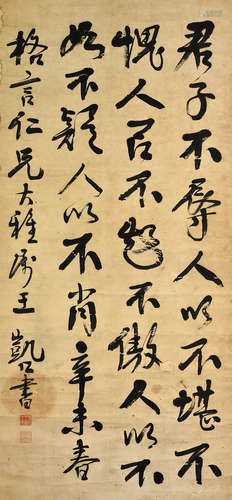 君子不辱人以不堪不
愧人以不知不傲人以不
如不疑人以不肖辛未春
格言仁兄大雅属王凯书